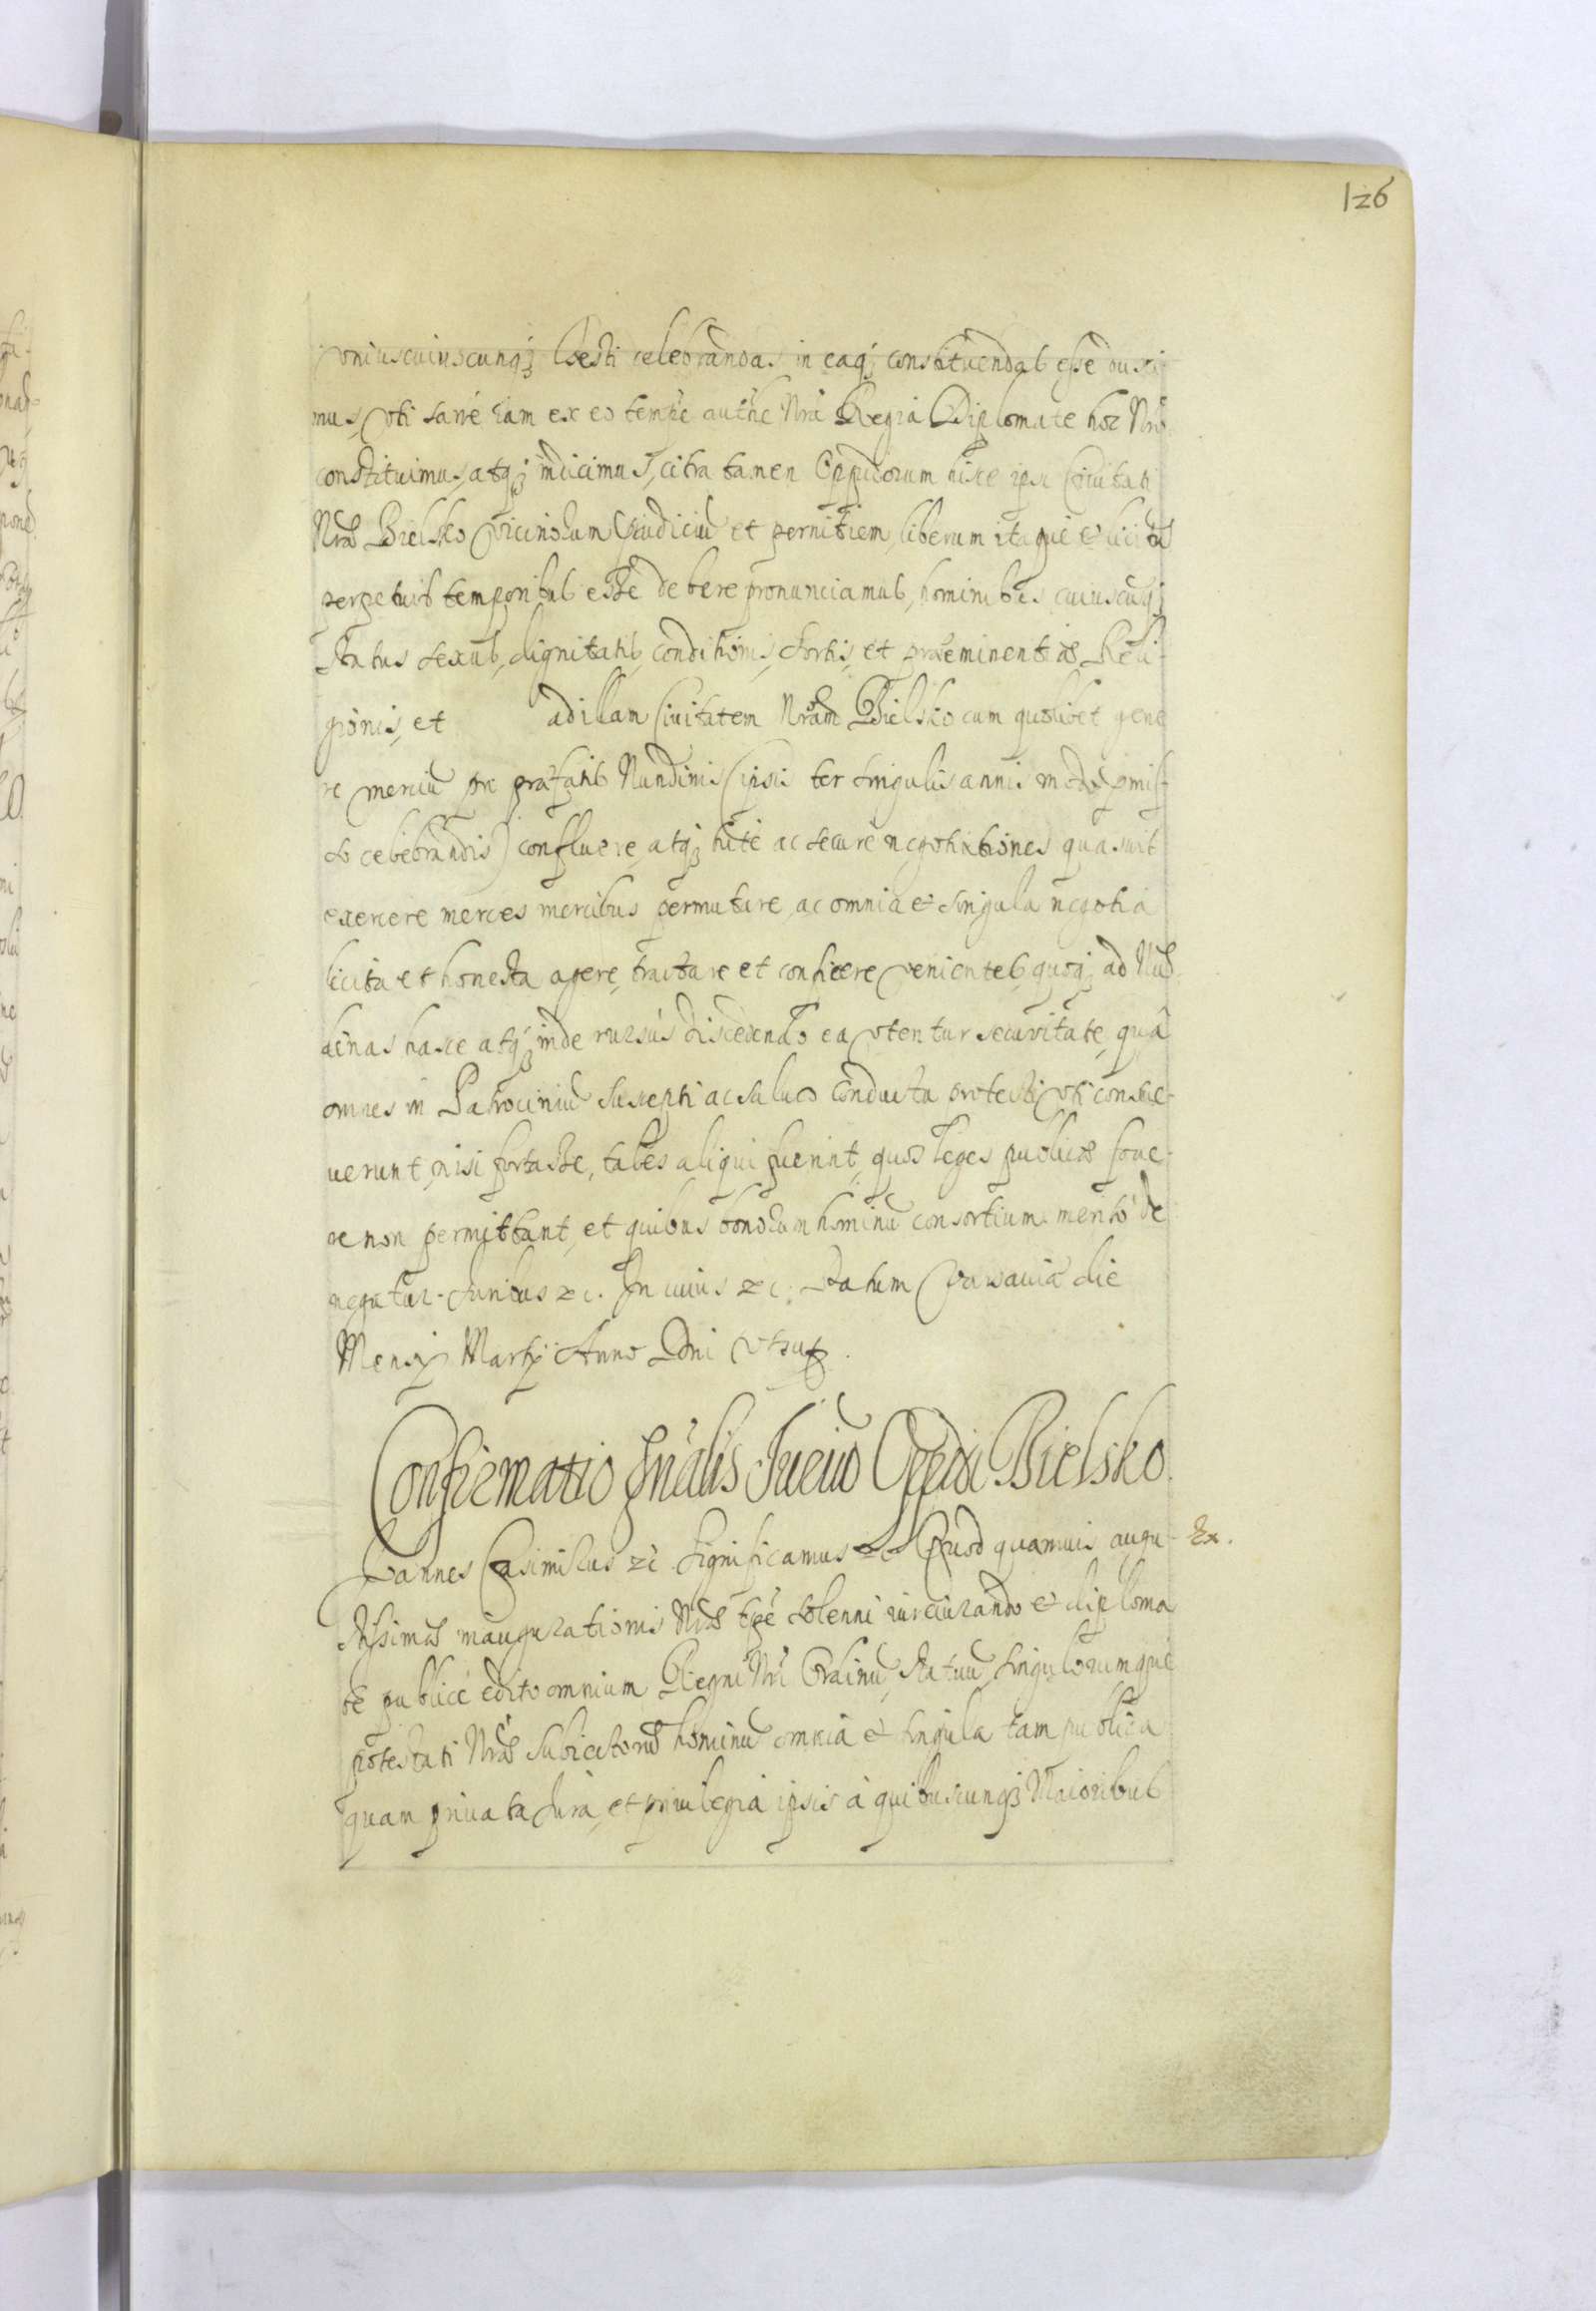 126
vniuscuiuscunq; festi celebrandas, in eaq; constituendas esse duxi-
mus, vti sane iam ex eo tempe authe Nra Regia Diplomate hoc Nro
constituimus, atq; indicimus, citra tamen Oppidorum hisce ipsi Ciuitati
Nræ Bielsko vicinorum præiudiciũ et pernitiem, liberum itaque & licitũ
perpetuis temporibus esse debere pronunciamus, hominibus cuiuscuq;
status sexus, dignitatis, conditionis, sortis, et præeminentiæ Reli-
gionis, et ad illam Ciuitatem Nram Bielsko cum quolibet gene
re merciũ pro præfatis Nundinis (ipsis ter singulis annis modo pmis-
so celebrandis) confluere, atq; tute ac secure negotiationes quasuis
exercere merces mercibus permutare, ac omnia & singula negotia
licita et honesta agere, tractare et conficere venientes, quoq; ad Nun
dinas hasce atq; inde rursus discedendo ea vtentur securitate, quâ
omnes in Patrociniũ suscepti ac saluo conductu protecti vti consue-
uerunt, nisi fortasse, tales aliqui fuerint, quos leges publicæ foue-
re non permittant, et quibus bonorum hominũ consortium merito de
negatur. Juribus &c. In cuius &c. Datum Varsauiæ die
Mensis Martij Anno Dni vt supra.
Confirmatio Gnalis Juriũ Oppidi Bielsko.
Ioannes Casimirus &c. Significamus &c. Quod quamuis augu- Ex.
stissimæ inaugurationis Nræ tpe solenni iureiurando & diploma
te publice edito omnium Regni Nri Ordinũ, Statuũ, singulorumque
potestati Nræ subiectorũ hominũ omnia & singula tam publica
quam priuata Jura, et priuilegia ipsis à quibuscunq; Maioribus